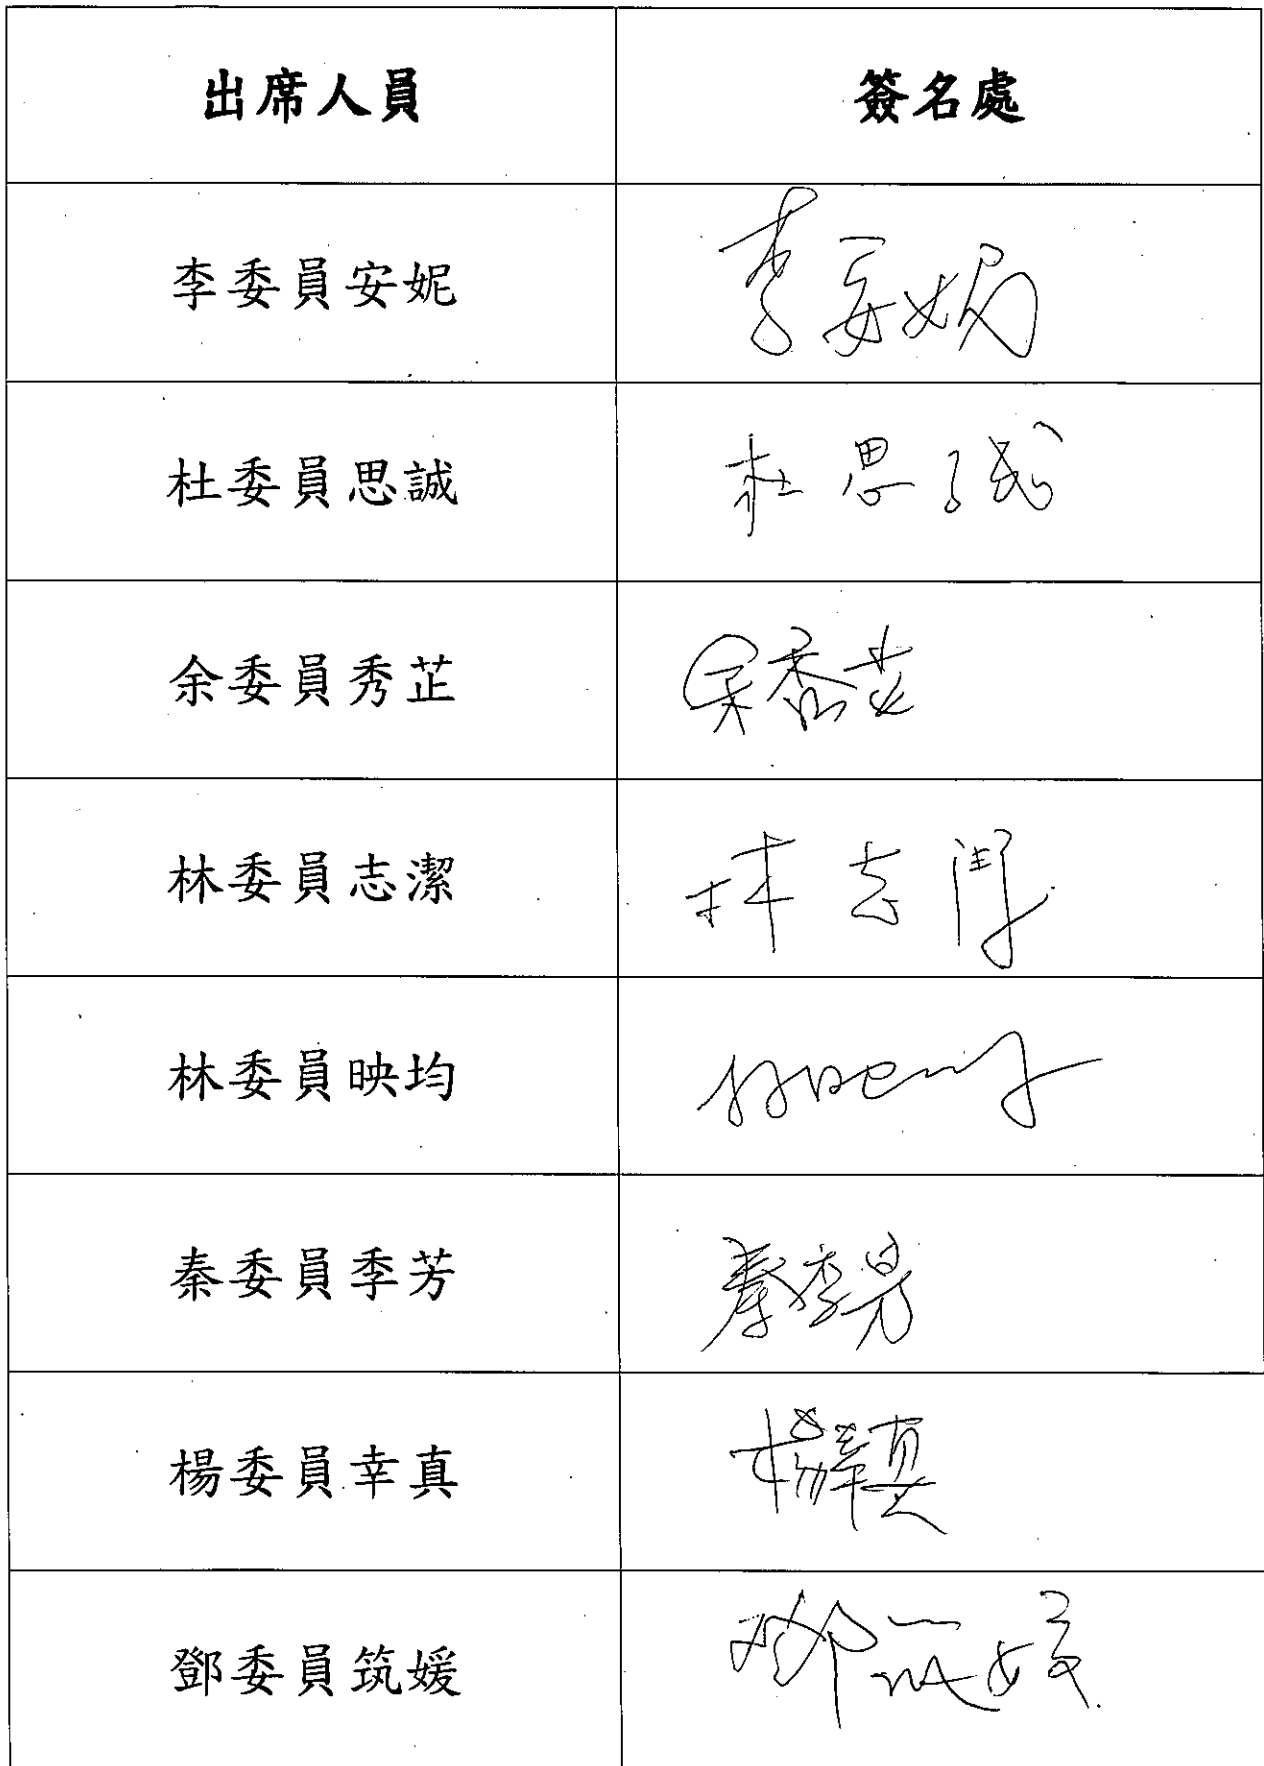 出席人員 簽名處
李委員安妮 李安妮
杜委員思誠 杜思誠
余委員秀芷 余秀芷
林委員志潔 林志潔
林委員映均
秦委員季芳 秦季芳
楊委員幸真 楊幸真
鄧委員筑媛 鄧筑媛